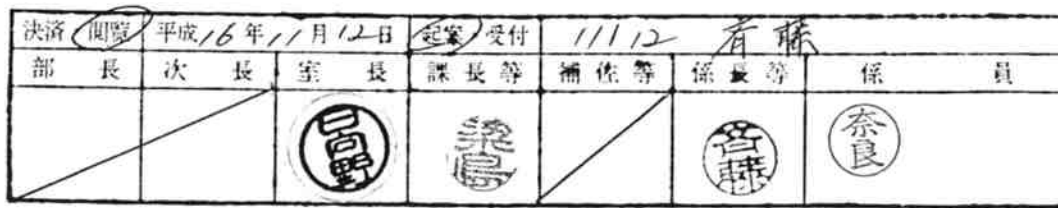 決済 閲覧 平成16年11月12日 起案 受付 11/12 斉藤
部長 次長 室長 課長等 補佐等 係長等 係員
日向野 梁島 斉藤 奈良